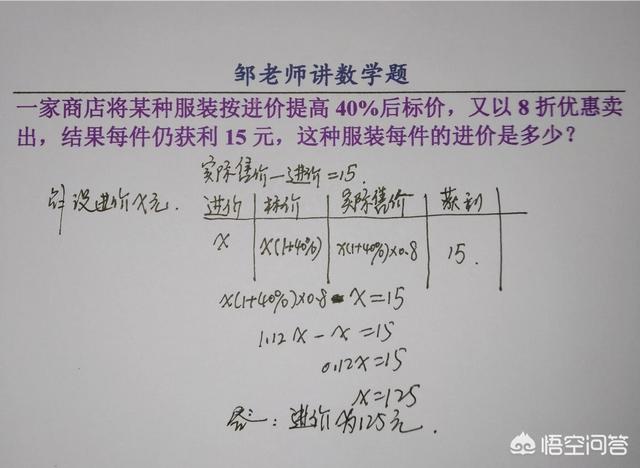 邹老师讲数学题
一家商店将某种服装按进价提高 40%后标价，又以 8 折优惠卖
出，结果每件仍获利 15 元，这种服装每件的进价是多少？
实际售价一进价=15.
解 设进价X元.
进价 标价 实际售价 获利
x x(1+40%) x(1+40%)×0.8 15.
x(1+40%)×0.8 - x=15
1.12x-x=15
0.12x=15
x=125
答：进价为125元.
悟空问答